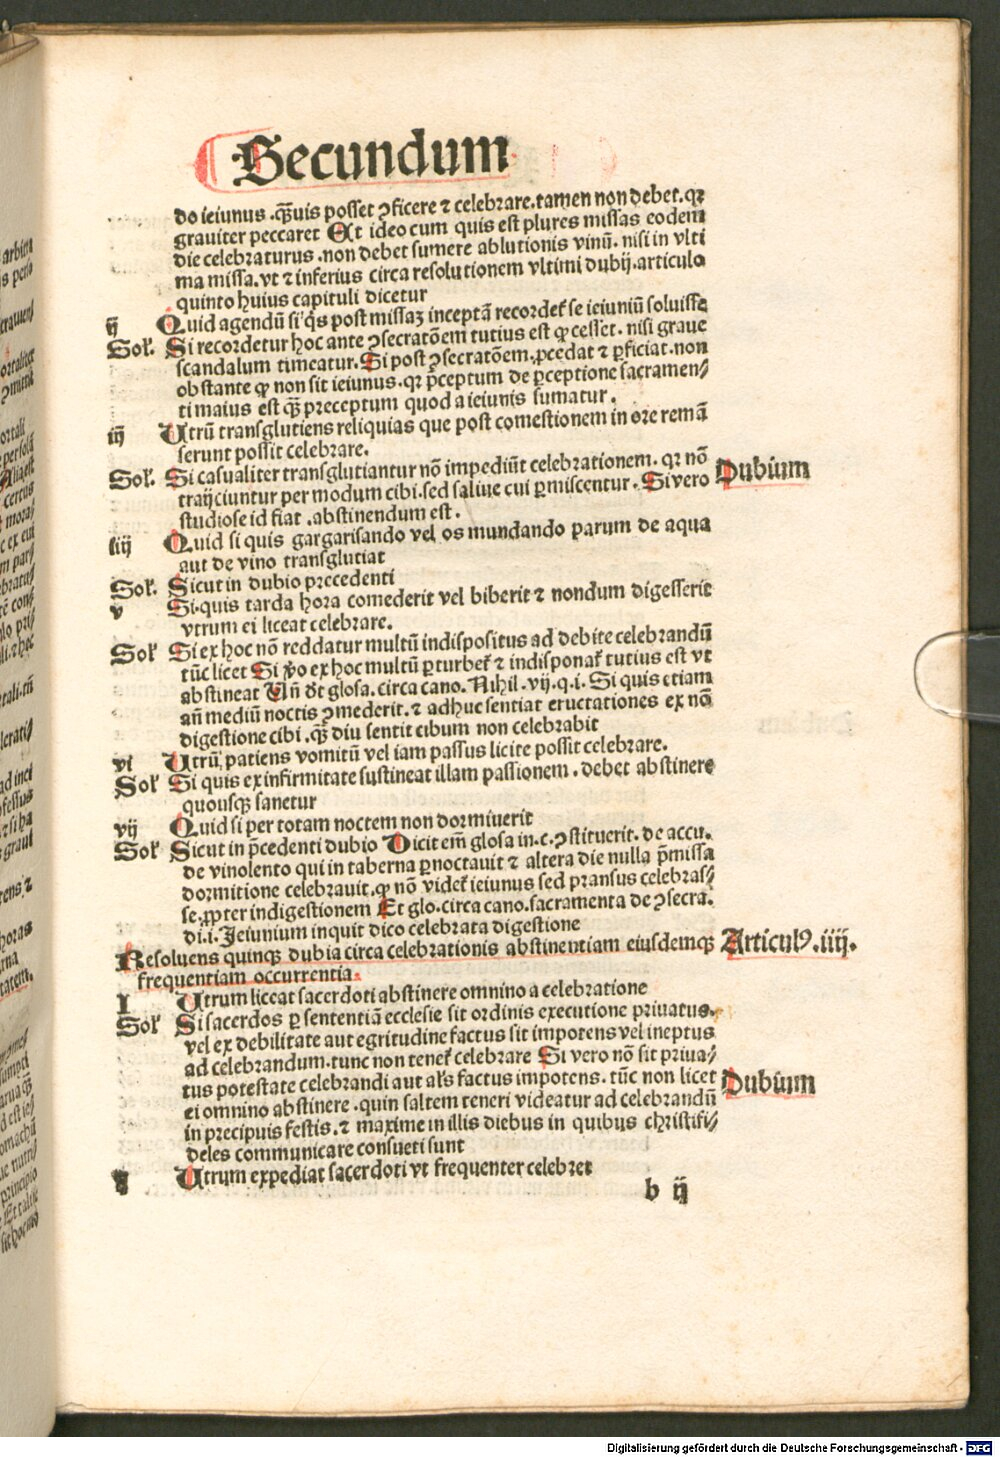 Secundum
do ieiunus .qͣuis posset ꝯficere ⁊ celebrare.tamen non debet.qꝛ
grauiter peccaret Et ideo cum quis est plures missas eodem
die celebraturus .non debet sumere ablutionis vinū. nisi in vlti
ma missa.vt ⁊ inferius circa resolutionem vltimi dubij.articulo
quinto huius capituli dicetur
ij Quid agendū si q̇s post missaꝫ inceptā recordet᷑ se ieiuniū soluisse
Sol᷑. Si recordetur hoc ante ꝯsecratōem tutius est ꝙ cesset. nisi graue
scandalum timeatur. Si post ꝯsecratōem.ꝓcedat ⁊ ꝑficiat.non
obstante ꝙ non sit ieiunus.qꝛ p̄ceptum de ꝑceptione sacramen⸗
ti maius est qͣꝫ preceptum quod a ieiunis sumatur.
iij Utrū transglutiens reliquias que post comestionem in ore remā
serunt possit celebrare.
Sol᷑. Si casualiter transglutiantur nō impediūt celebrationem. qꝛ nō
Dubium
traijciuntur per modum cibi.sed saliue cui ꝑmiscentur. Si vero
studiose id fiat .abstinendum est.
iiij Quid si quis gargarisando vel os mundando parum de aqua
aut de vino transglutiat
Sol᷑. Sicut in dubio precedenti
v Si quis tarda hora comederit vel biberit ⁊ nondum digesserit
vtrum ei liceat celebrare.
Sol᷑ Si ex hoc nō reddatur multū indispositus ad debite celebrandū
tūc licet Si ꝟo ex hoc multū ꝑturbet᷑ ⁊ indisponat᷑ tutius est vt
abstineat Uñ dt glosa.circa cano. Nihil .vij.q.i. Si quis etiam
añ mediū noctis ꝯmederit.⁊ adhuc sentiat eructationes ex nō
digestione cibi .qͣꝫ diu sentit cibum non celebrabit
vi Utrū patiens vomitū vel iam passus licite possit celebrare.
Sol᷑ Si quis ex infirmitate sustineat illam passionem . debet abstinere
quousqꝫ sanetur
vij Quid si per totam noctem non dormiuerit
Sol᷑ Sicut in p̄cedenti dubio Dicit em̄ glosa in.c.ꝯstituerit. de accu.
de vinolento qui in taberna ꝑnoctauit ⁊ altera die nulla p̄missa
dormitione celebrauit.ꝙ nō videt᷑ ieiunus sed pransus celebras⸗
se.ꝓpter indigestionem Et glo.circa cano.sacramenta de ꝯsecra.
di.i. Ieiunium inquit dico celebrata digestione
Resoluens quinqꝫ dubia circa celebrationis abstinentiam eiusdemqꝫ
Articulꝰ.iiij.
frequentiam occurrentia.
I Utrum liceat sacerdoti abstinere omnino a celebratione
Sol᷑ Si sacerdos ꝑ sententiā ecclesie sit ordinis executione priuatus.
vel ex debilitate aut egritudine factus sit impotens vel ineptus
ad celebrandum.tunc non tenet᷑ celebrare Si vero nō sit priua⸗
tus potestate celebrandi aut al᷑s factus impotens. tūc non licet
Dubium
ei omnino abstinere .quin saltem teneri videatur ad celebrandū
in precipuis festis.⁊ maxime in illis diebus in quibus christifi⸗
deles communicare consueti sunt
Utrum expediat sacerdoti vt frequenter celebret
b ij
Digitalisierung gefördert durch die Deutsche Forschungsgemeinschaft - DFG